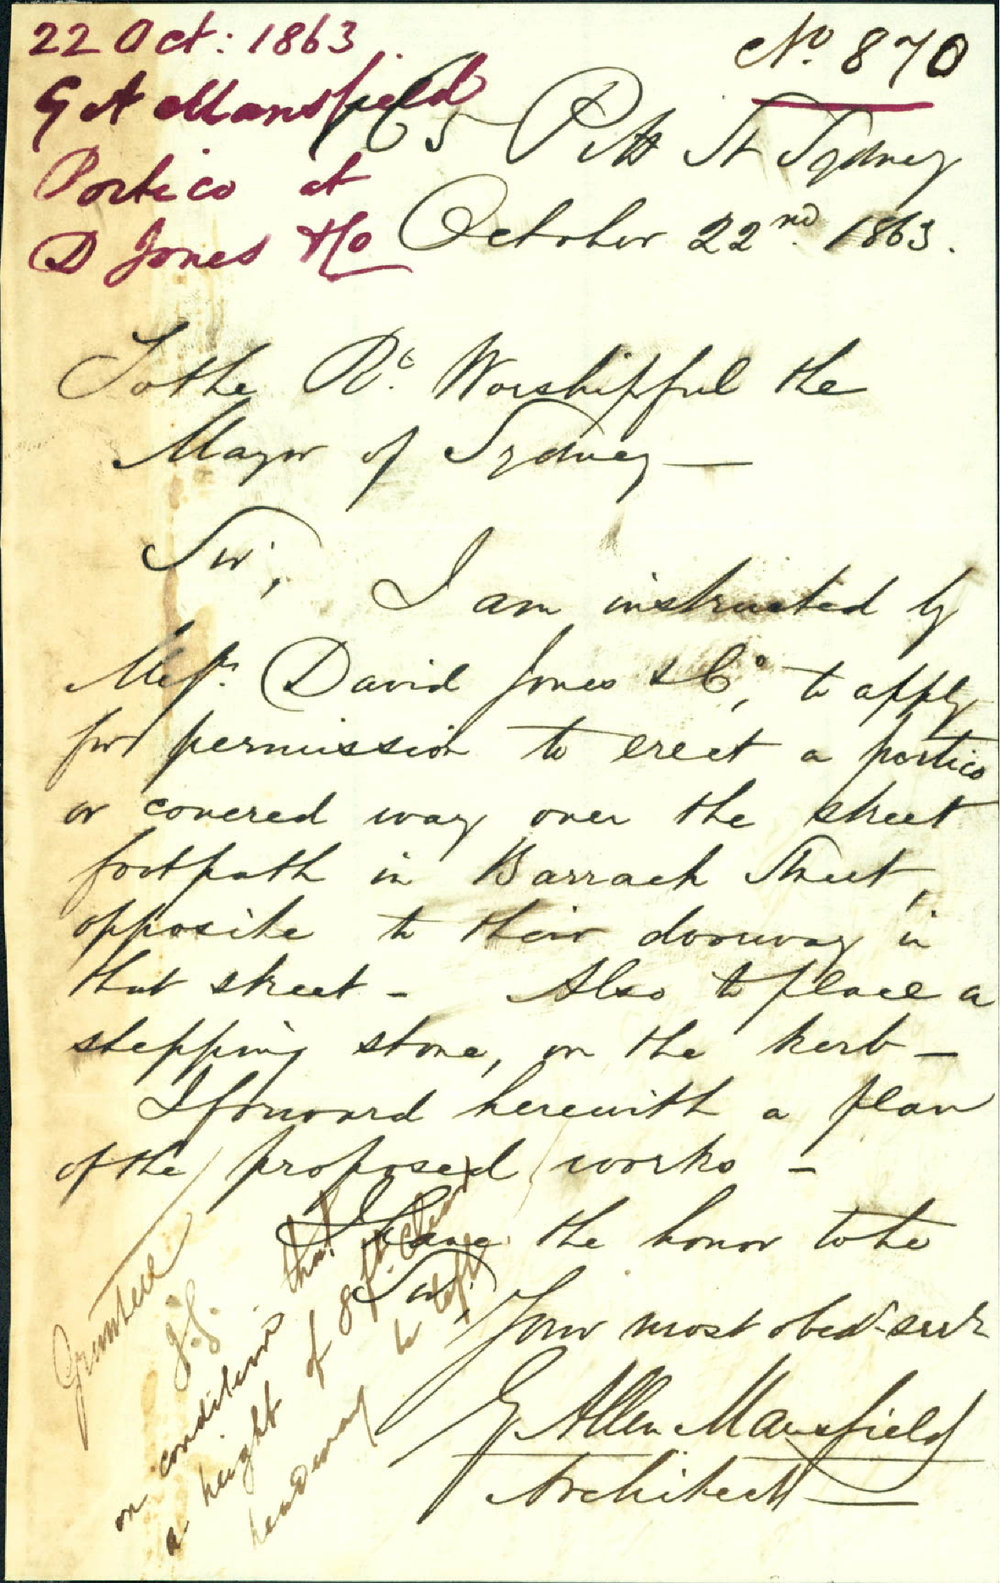 22 Oct: 1863
G A Mansfield
Portico at
D Jones & Co
No. 870
65 Pitt St Sydney
October 22nd. 1863.
To the Rt. Worshipful the
Mayor of Sydney —
Sir,
I am instructed by
Messrs. David Jones & Co, to apply
for permission to erect a portico
or covered way over the street
footpath in Barrack Street,
opposite to their doorway in
that street - Also to place a
stepping stone, on the kerb —
I forward herewith a plan
of the proposed works -
I have the honor to be
Sir,
Your most obedt. servt.
G. Allen Mansfield
Architect —
Granted
on condition that
a height of 8 ft. clear
headway be left